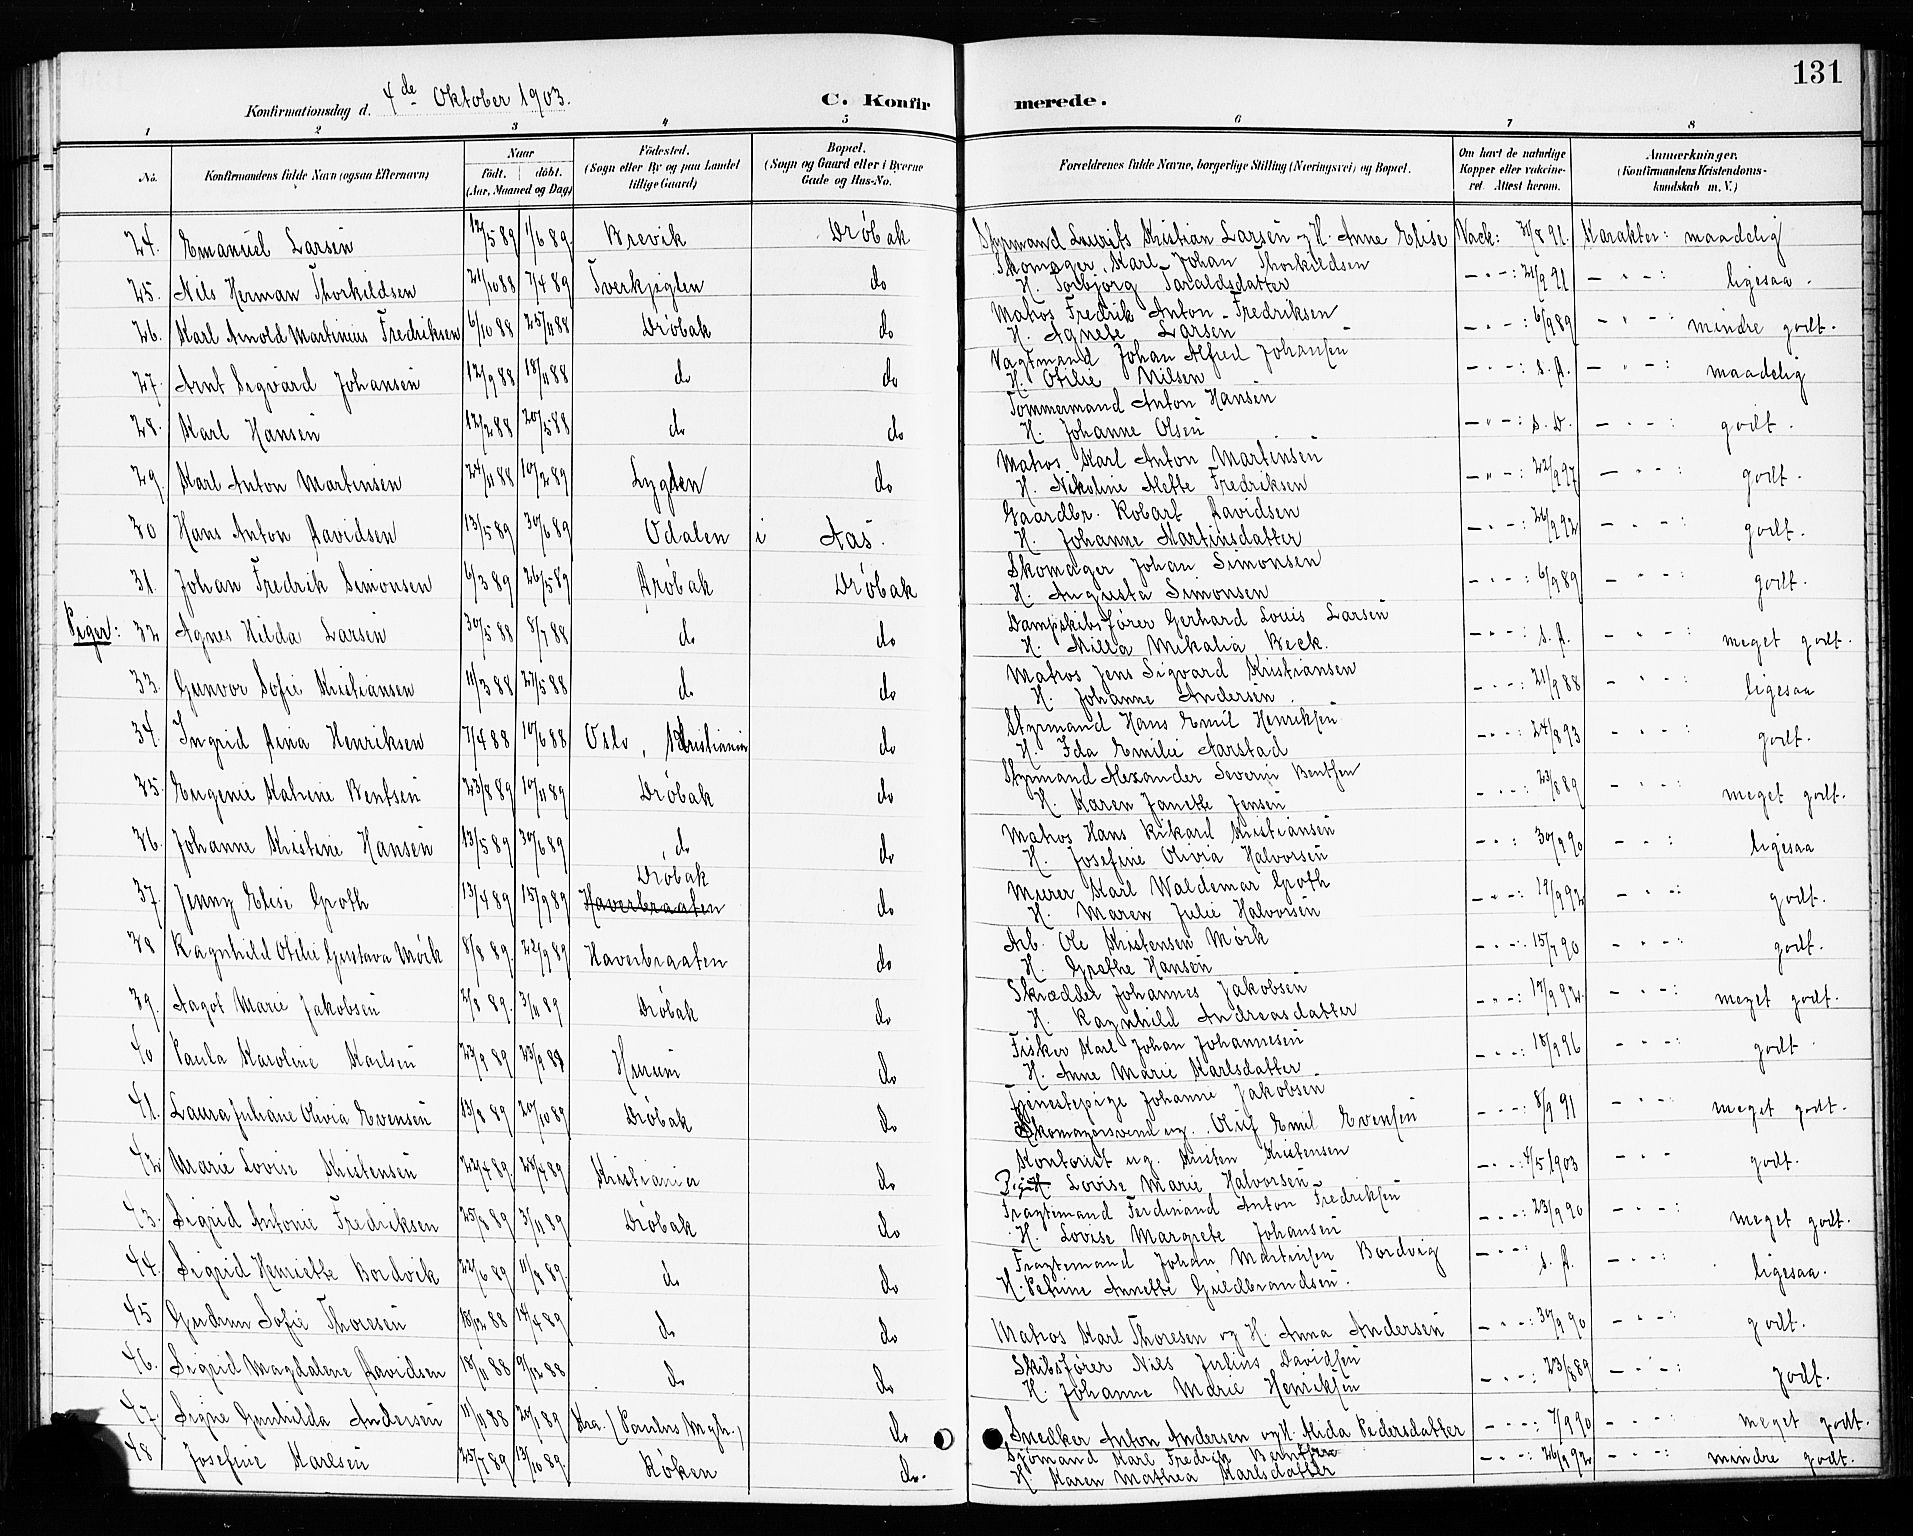 131
Konfirmationsdag d. 4de Oktober 1903.
C. Konfirmerede.
1 2 3 4 5 6 7 8
No. Konfirmandens fulde Navn (ogsaa Efternavn) Naar födt. döbt. (Aar, Maaned og Dag) Födested. (Sogn eller By og paa Landet tillige Gaard) Bopæl. (Sogn og Gaard eller i Byerne Gade og Hus-No. Forældrenes fulde Navne, borgerlige Stilling (Næringsvei) og Bopæl. Om havt de naturlige Kopper eller vaccineret. Attest herom. Anmærkninger. (Konfirmandens Kristendomskundskab m. V.)
24. Emanuel Larsen 12/5 89 1/6 89. Brevik Dröbak Styrmand Laurits Kristian Larsen og H. Anne Elise Vack: 31/8 91. Karakter: maadelig
25. Nils Herman Thorkildsen 21/10 88 7/4 89 Do Skomager Karl Johan Thorkildsen
H. Torbjörg Taraldsdatter - " - : 21/9 91 - " - : ligesaa.
26. Karl Arnold Martinius Fredriksen 6/10 88 25/11 88 Dröbak do Matros Fredrik Anton Fredriksen
H. Agnete Larsen - " - : 6/9 89 - " - : mindre godt.
27. Arnt Sigvard Johansen 12/9 88 18/11 88 do do Vagtmand Johan Alfred Johansen
H. Otilie Nilsen - " - : s. D. - " - : maadelig
28. Karl Hansen 12/2 88 20/5 88 do do Tömmermand Anton Hansen
H. Johanne Olsen - " - : s. D. - " - : godt.
29. Karl Anton Martinsen 24/11 88 10/2 89 do Matros Karl Anton Martinsen
H. Nikoline Alette Fredriksen - " - : 22/9 97 - " - : godt.
30 Hans Anton Davidsen 13/5 89 30/6 89 Odalen i Aas. Gaardbr. Robart Davidsen
H. Johanne Martinsdatter - " - : 26/9 92 - " - : godt.
31. Johan Fredrik Simonsen 6/3 89 26/5 89 Dröbak Dröbak Skomager Johan Simonsen
H. Augusta Simonsen - " - : 6/9 89 - " - : godt.
Piger: 32 Agnes Hilda Larsen 30/5 88 8/7 88 do do Dampskibsförer Gerhard Louis Larsen
H. Milla Mikalia Beck. - " - : s. D. - " - : meget godt.
33. Gunvor Sofie Kristiansen 11/3 88 27/5 88 do do Matros Jens Sigvard Kristiansen
H. Johanne Andersen - " - : 21/9 88 - " - : ligesaa
34. Ingrid Dina Henriksen 7/4 88 10/6 88 Oslo, Kristiania do Styrmand Hans Emil Henriksen
H. Ida Emilie Aarstad - " - : 24/8 93 - " - : godt.
35. Eugenie Katrine Bentsen 23/8 89 10/11 89 Dröbak do Styrmand Alexander Severin Bentsen
H. Karen Janette Jensen - " - : 23/8 89 - " - : meget godt.
36. Johanne Kristine Hansen 13/5 89 30/6 89 do do Matros Hans Rikard Kristiansen
H. Josefine Olivia Halvorsen - " - : 30/9 90 - " - : ligesaa
37. Jenny Elise Groth 13/4 89 15/9 89 Dröbak
Haverbraaten do Murer Karl Waldemar Groth
H. Maren Julie Halvorsen - " - : 19/9 92 - " - : godt.
38 Ragnhild Otilie Gustava Mörk 8/8 89. 22/9 89 Haverbraaten do Arb. Ole Kristensen Mörk
H. Grethe Hansen - " - : 15/7 90 - " - : godt.
39. Aagot Marie Jakobsen 2/8 89. 3/11 89 Dröbak do Skrædder Johannes Jakobsen
H. Ragnhild Andreasdatter - " - : 17/9 92. - " - : meget godt.
40 Paula Karoline Karlsen Hurum do Fisker Karl Johan Johannesen
H. Anne Marie Karlsdatter - " - : 18/9 96 - " - : godt.
41. Laura Juliane Olivia Evensen 13/8 89 20/10 89 Dröbak do Tjenestepige Johanne Jakobsen
Skomagersvend ug. Oluf Emil Evensen - " - : 8/9 91 - " - : meget godt.
42 Marie Lovise Kristensen 22/4 89 Kristiania do Kontorist ug. Kristen Kristensen
Pige Lovise Marie Halvorsen - " - : 4/5 1903 - " - godt.
43. Sigrid Antonie Fredriksen 25/8 89 3/11 89 Dröbak do Fragtemand Ferdinand Anton Fredriksen
H. Lovise Margrete Johansen - " - : 23/9 90 - " - : meget godt.
44. Sigrid Henriette Bordvik 22/6 89 11/8 89. do do Fragtemand Johan Martinsen Bordvig
H. Petrine Annette Guldbrandsen. - " - : s. D. - " - : ligesaa.
45 Gudrun Sofie Thoresen 18/12 88 14/4 89 do do Matros Karl Thoresen og H. Anna Andersen - " - : 30/9 90 - " - : godt.
46. Sigrid Magdalene Davidsen 18/11 88 9/12 88 do do Skibsförer Nils Julius Davidsen
H. Johanne Marie Henriksen - " - : 23/8 89 - " - : godt.
47. Signe Gunhilda Andersen 11/11 88 20/1 89 Kra. (Paulus Mgh.) do Snedker Anton Andersen og H. Alida Pedersdatter - " - : 7/9 90 - " - : meget godt.
48 Josefine Karlsen 25/7 89 13/10 89. Röken do. Sjömand Karl Fredrik
H. Karen Mathea Karlsdatter - " - : 26/9 92 - " - : mindre godt.